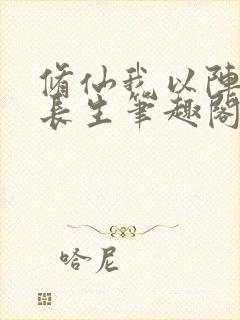 脩仙我以陣
長生筆趣閣
哈尼